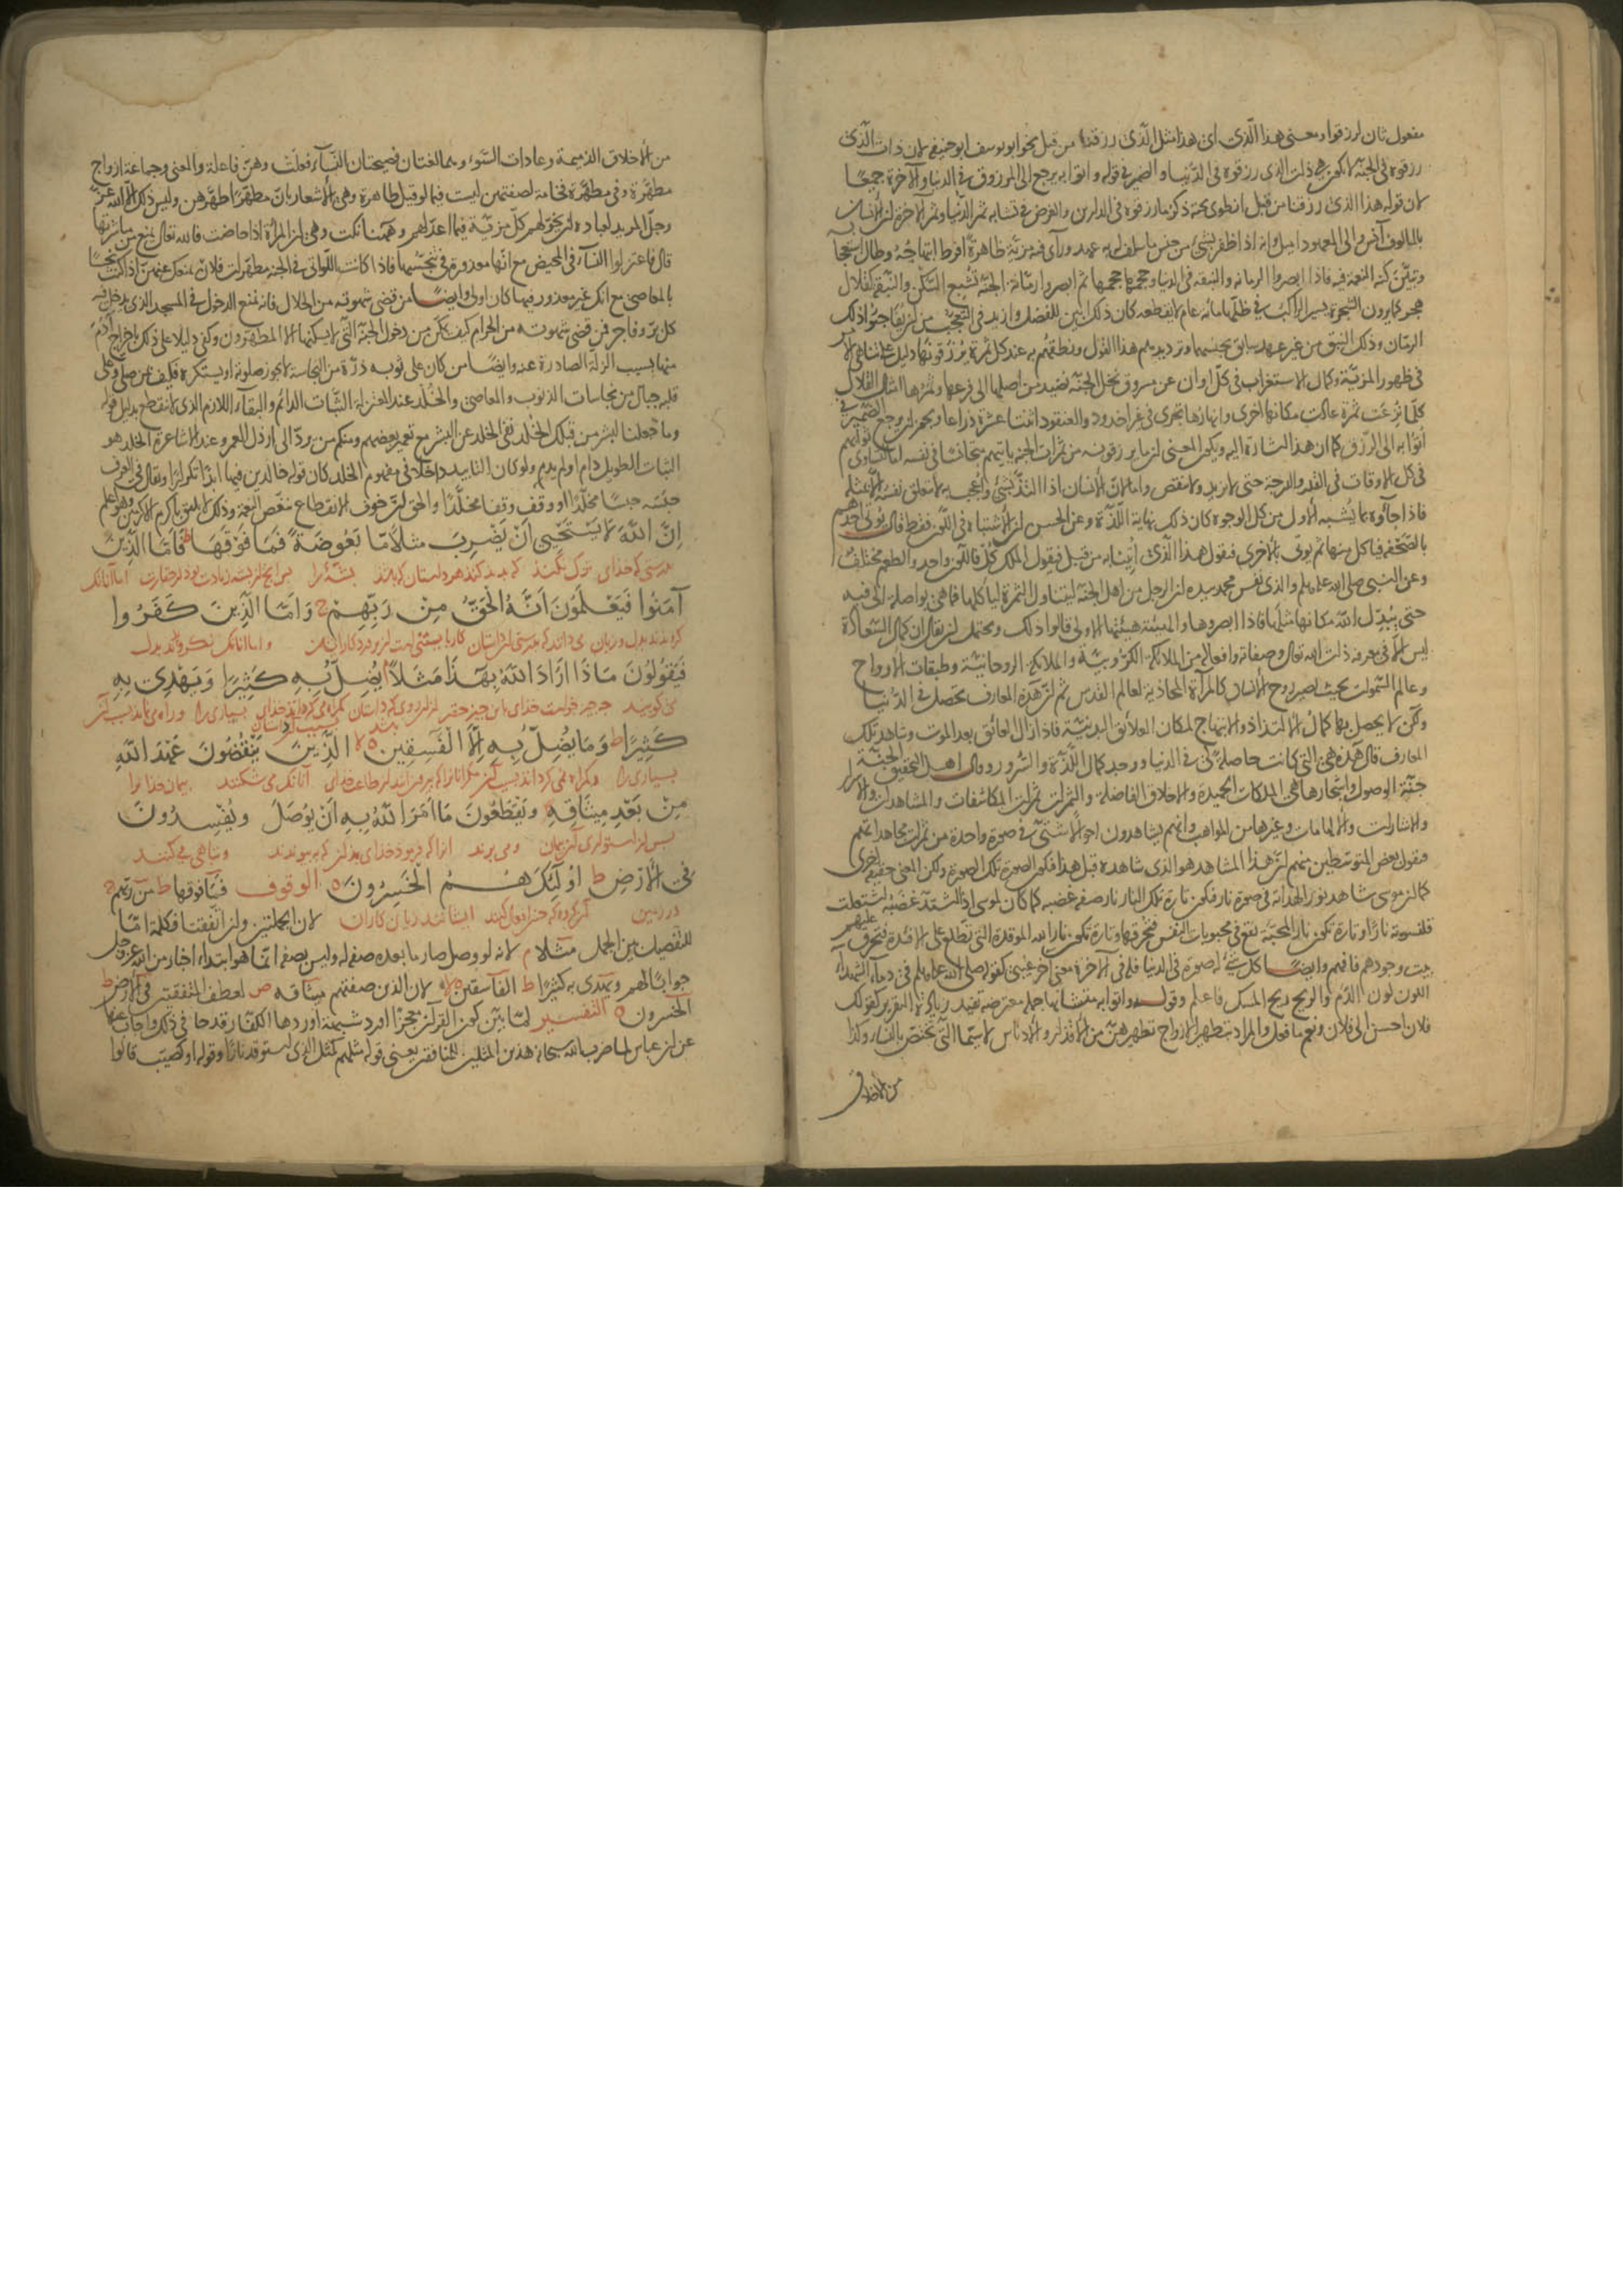 مفعول ثان لرزقوا ومعنى هذا الذى اى هذا مثل الذى رزقنا من قبل نحو ابو يوسف ابو حنيفة لان ذات الذى
رزقوه فى الجنة لا تكون هى ذات الذى رزقوه فى الدنيا والضمير فى قوله واتوا به يرجع الى المرزوق فى الدنيا والآخرة جميعا
لان قوله هذا الذى رزقنا من قبل انطوى تحته ذكر ما رزقوه فى الدارين والغرض فى تشابه ثمر الدنيا وثمر الآخرة ان الانسان
بالمألوف آنس والى المعهود اميل وانه اذا ظفر بشئ من جنس ما سلف له به عهد ورأى فيه مزية ظاهرة افرط ابتهاجه وطال استعجابه
وتبين كنه النعمة فيه فاذا ابصروا الرمانة والنبقة فى الدنيا وحجمها ثم ابصروا رمانة الجنة تشبع السكن والنبقة كقلال
هجر كما يرون الشجرة يسير الراكب فى ظلها مائة عام لا يقطعه كان ذلك ابين للفضل وازيد فى التعجب من ان يفاجئوا ذلك
الرمان وذلك النبق من غير عهد سابق بجنسهما وترديدهم هذا القول ونطقهم به عند كل ثمرة يرزقونها دليل على تناهى الامر
فى ظهور المزية وكمال الاستغراب فى كل اوان عن مسروق نخل الجنة نضيد من اصلها الى فرعها وثمرها امثال القلال
كلما نزعت ثمرة عادت مكانها اخرى وانهارها تجرى فى غير اخدود والعنقود اثنتا عشرة ذراعا ويجوز ان يرجع الضمير فى
اتوا به الى الرزق كما ان هذا اشارة اليه ويكون المعنى ان ما يرزقونه من ثمرات الجنة يأتيهم متجانسا فى نفسه اما لتساوى ثوابهم
فى كل الاوقات فى القدر والدرجة حتى لا يزيد ولا ينقص واما لان الانسان اذا التذ بشئ واعجب به لا تتعلق نفسه الا بمثله
فاذا جاؤه بما يشبه الاول من كل الوجوه كان ذلك نهاية اللذة وعن الحسن ان الاشتباه فى اللون فقط قال يؤتى احدهم
بالصحفة فياكل منها ثم يؤتى بالاخرى فيقول هذا الذى اتينا به من قبل فيقول الملك كل فاللون واحد والطعم مختلف
وعن النبى صلى الله عليه وسلم والذى نفس محمد بيده ان الرجل من اهل الجنة ليتناول الثمرة لياكلها فما هى بواصلة الى فيه
حتى يبدل الله مكانها مثلها فاذا ابصروها والهيئة هيئة الاولى قالوا ذلك ويحتمل ان يقال ان كمال السعادة
ليس الا فى معرفة ذات الله تعالى وصفاته وافعاله من الملائكة الكروبية والملائكة الروحانية وطبقات الارواح
وعالم السموات بحيث يصير روح الانسان كالمرآة المحاذية لعالم القدس ثم ان هذه المعارف تحصل فى الدنيا
ولكن لا يحصل بها كمال الالتذاذ والابتهاج لمكان العلائق البدنية فاذا زال العائق بعد الموت وشاهد تلك
المعارف قال هذه هى التى كانت حاصلة لى فى الدنيا ووجد كمال اللذة والسرور وقال اهل التحقيق الجنة
جنة الوصول واشجارها هى الملكات الحميدة والاخلاق الفاضلة والثمرات ثمرات المكاشفات والمشاهدات والاسرار
والاشارات والالهامات وغيرها من المواهب وانهم يشاهدون احوالا شتى فى صورة واحدة من ثمرات مجاهداتهم
فيقول بعض المتوسطين منهم ان هذا المشاهد هو الذى شاهده قبل هذا فتكون الصورة تلك الصورة ولكن المعنى حقيقة اخرى
كما ان موسى شاهد نور الهداية فى صورة نار فتكون تارة تلك النار نار صفة غضبه كما كان لموسى اذا اشتد غضبه اشتعلت
قلنسوته نارا وتارة تكون نار المحبة تقع فى محبوبات النفس فتحرقها وتارة تكون نار الله الموقدة التى تطلع على الافئدة فتحرق عليهم
بيت وجودهم فافهم وايضا كل شئ له صورة فى الدنيا فله فى الآخرة معنى آخر غيبى كقوله صلى الله عليه وسلم فى دماء الشهداء
اللون لون الدم والريح ريح المسك فاعلم وقوله واتوا به متشابها جملة معترضة تفيد زيادة التقرير كقولك
فلان احسن الى فلان ونعم ما فعل والمراد بتطهير الازواج تطهيرهن من الاقذار والادناس لا سيما التى تختص بالنساء وكذا
من الاخلاق
من الاخلاق الذميمة وعادات السوء وهما لغتان فصيحتان النساء فعلت وهن فاعلة والمعنى وجماعة ازواج
مطهرة وفى مطهرة فخامة لصفتهن ليست فيما لو قيل طاهرة وهى الاشعار بان مطهرا طهرهن وليس ذلك الا الله عز
وجل المريد لعباده ان يخولهم كل مزية فيما اعد لهم وههنا نكت وهى ان المرأة اذا حاضت فالله تعالى يمنع من مباشرتها
قال فاعتزلوا النساء فى المحيض مع انها معذورة فى تنجسها فاذا كانت اللواتى فى الجنة مطهرات فلان يمنعك عنهن اذا كنت نجسا
بالمعاصى مع انك غير معذور فيها كان اولى وايضا من قضى شهوته من الحلال فانه يمنع الدخول فى المسجد الذى يدخل فيه
كل بر وفاجر فمن قضى شهوته من الحرام كيف يمكن من دخول الجنة التى لا يسكنها الا المطهرون وكفى دليلا على ذلك اخراج آدم
منها بسبب الزلة الصادرة عنه وايضا من كان على ثوبه ذرة من النجاسة لا يجوز صلوته او يستكره فكيف من صلى وعلى
قلبه جبال من نجاسات الذنوب والمعاصى والخلد عند المعتزلة الثبات الدائم والبقاء اللازم الذى لا ينقطع بدليل قوله
وما جعلنا لبشر من قبلك الخلد نفى الخلد عن البشر مع تعمير بعضهم ومنكم من يرد الى ارذل العمر وعند الاشاعرة الخلد هو
الثبات الطويل دام او لم يدم ولو كان التأبيد داخلا فى مفهوم الخلد كان قوله خالدين فيها ابدا تكرارا ويقال فى العرف
حبسه حبسا مخلدا او وقف وقفا مخلدا والحق ان خوف الانقطاع منغص النعمة وذلك لا يليق باكرم الاكرمين وهو اعلم
اِنَّ اللّٰهَ لَا يَسْتَحْيِى اَنْ يَضْرِبَ مثَلًا مَّا بَعُوضَةً فَمَا فَوْقَهَا ط فَاَمَّا الَّذِينَ
بدرستى كه خداى ترك نكند كه بيد كند هر داستان كه باشد پشه را پس انچه از پشه زيادت بود در حقارت اما آنانك
آمَنُوا فَيَعْلَمُونَ اَنَّهُ الْحَقُّ مِنْ رَبِّهِمْ ج وَاَمَّا الَّذِينَ كَفَرُوا
كرويدند بدل و زبان مى دانند كه بدرستى ان داستان كار بايستنى است از پروردكار ايشان و اما آنانك نكرويدند بدل
فَيَقُولُونَ مَاذَا اَرَادَ اللّٰهُ بِهٰذَا مَثَلًا يُضِلُّ بِهِ كَثِيرًا وَيَهْدِى بِهِ
مى كويند چه چيز خواست خداى باين چيز حقير از روى داستان كمراه مى كرداند خداى بسيارى را و راه مى نمايد بسبب آن
كَثِيرًا ط وَمَا يُضِلُّ بِهِ اِلَّا الْفٰسِقِينَ ه لا الَّذِينَ يَنْقُضُونَ عَهْدَ اللّٰهِ
بسيارى را و كمراه نمى كرداند بسبب آن مكر آنانرا كه بيرون آيند از طاعت خداى آنانك مى شكنند پيمان خدا را
مِنْ بَعْدِ مِيثَاقِهِ وَيَقْطَعُونَ مَا اَمَرَ اللّٰهُ بِهِ اَنْ يُوصَلَ وَيُفْسِدُونَ
پس از استوارى آن پيمان و مى برند انرا كه فرمود خداى بدان كه به پيوندند و تباهى مى كنند
فِى الْاَرْضِ ط اُولٰئِكَ هُمُ الْخٰسِرُونَ ه الوقوف فَمَا فوقها ط من ربهم ج
در زمين آن كروه ايشانند زيان كاران لان الجملتين وان اتفقتا فكلمة اما
للتفصيل بين الجمل مثلا م لانه لو وصل صار ما بعده صفة له وليس بصفة انما هو ابتداء اخبار من الله عز وجل
جوابا لهم ويهدى به كثيرا ط الفاسقين ه لا لان الذين صفتهم ميثاقه ص لعطف المتفقتين فى الارض ط
الخسرون ه التفسير لما بين كون القرآن معجزا اورد شبهة اوردها الكفار قدحا فى ذلك واجاب عنها
عن ابن عباس لما ضرب الله سبحانه هذين المثلين للمنافقين يعنى قوله مثلهم كمثل الذى استوقد نارا وقوله او كصيب قالوا